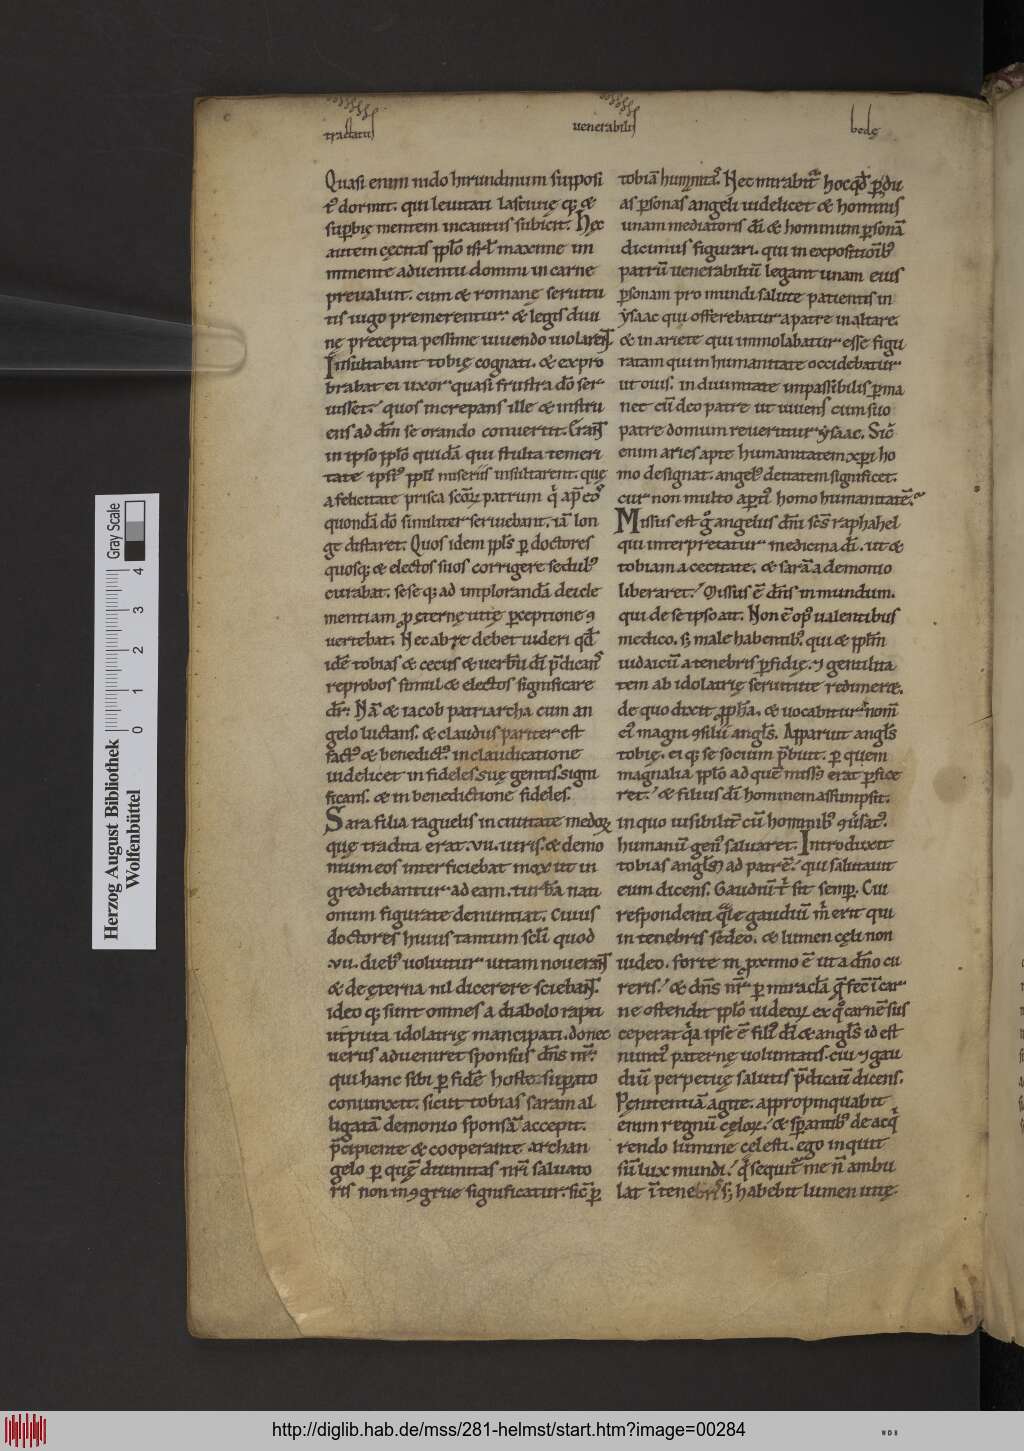 tractatus
venerabilis
bedę
Quasi enim nido hirundinum supposi
t᷒ dormit. qui leuitati lasciuię q; &
suꝑbię mentem incautus subicit. Hęc
autem cęcitas ppl̄o isrl̄ maxime im
minente aduentu domini in carne
preualuit. cum & romanę seruitu
tis iugo premerentur. & legis diui
nę precepta pessime uiuendo uiolarent.
Insultabant tobię cognati. & expro
brabat ei uxor quasi frustra dō ser
uisset. quos increpans ille & instru
ens ad dm̄ se orando conuertit. Erant
in ipso ppl̄o quidā qui stulta temeri
tate ipsi᷒ ppl̄i miseriis insultarent. quę
a felicitate prisca scōꝝ patrum q̇ ap̄ eos
quondā dō similiter seruiebant. iā lon
ge distaret. Quos idem ppl̄s ꝑ doctores
quosq; & electos suos corrigere sedul᷒
curabat. sese q; ad implorandā dei cle
mentiam ꝓ ęternę uitę ꝑceptione ꝯ
uertebat. Nec ab re debet uideri qd̄
idē tobias & cecus & uerbū dī p̄dicans
reprobos simul & electos significare
dr̄. Nā & iacob patriarcha cum an
gelo luctans. & claudus pariter est
fact᷒ & benedict᷒. in claudicatione
uidelicet infideles suę gentis signi
ficans. & in benedictione fideles.
Sara filia raguelis in ciuitate medoꝝ
quę tradita erat .vii. uiris. & demo
nium eos interficiebat mox ut in
grediebantur ad eam. turbā nati
onum figurate denuntiat. Cuius
doctores huius tantum sclī quod
.vii. dieb᷒ uoluitur uitam nouerant
& de ęterna nil dicere sciebant.
ideo q; sunt omnes a diabolo rapti
utputa idolatrię mancipati. donec
uerus adueniret sponsus dn̄s nr̄.
qui hanc sibi ꝑ fidē hoste suꝑato
coniunxit. sicut tobias saram al
ligatā demonio sponsā accepit.
p̄cipiente & cooperante archan
gelo ꝑ quē diuinitas nr̄i saluato
ris non inꝯgrue significatur. sic̄ ꝑ
tobiā humanitas. Nec mirabit᷑ hoc qd̄ ꝑ du
as ꝑsonas angeli uidelicet & hominis
unam mediatoris dī & hominum ꝑsonā
dicimus figurari. qui in expositionib᷒
patrū uenerabiliū legant unam eius
ꝑsonam pro mundi salute patientis in
ysaac qui offerebatur a patre in altare.
& in ariete qui immolabatur esse figu
ratam qui in humanitate occidebatur
ut ouis. in diuinitate impassibilis ꝑma
net cū deo patre ut uiuens cum suo
patre domum reuertitur ysaac. Sic̄
enim aries apte humanitatem xp̄i ho
mo designat. angel᷒ deitatem significet.
cur non multo aꝑti᷒ homo humanitatē.
Missus est g̊ angelus dn̄i scs̄ raphahel
qui interpretatur medicina dī. ut &
tobiam a cecitate. & sarā a demonio
liberaret. Missus ē dn̄s in mundum.
qui de se ipso ait. Non ē op᷒ ualentibus
medico. s; male habentib᷒. qui & ppl̄m
iudaicū a tenebris ꝑfidię. ⁊ gentilita
tem ab idolatrię seruitute redimeret.
de quo dixit ꝓph̄a. & uocabitur nom̄
ei᷒ magni ꝯsilii angl̄s. Apparuit angl̄s
tobię. ei q; se socium p̄buit. ꝑ quem
magnalia ppl̄o ad quē miss᷒ erat ꝑfice
ret. & filius dī hominem assumpsit.
in quo uisibilit̄ cū hominib᷒ ꝯuersat᷒
humanū gen᷒ saluaret. Introduxit
tobias angl̄m ad patrē. qui salutauit
eum dicens. Gaudiū t̄ sit semꝑ. Cui
respondenti quale gaudiū m̄ erit qui
in tenebris sedeo. & lumen cęli non
uideo. forte in ꝓximo ē ut a dn̄o cu
reris. & dn̄s nr̄ ꝑ miracl̄a q̄ fec̄ ī car
ne ostendit ppl̄o iudeoꝝ ex q̊ carnē sus
ceperat qa ipse ē fili᷒ dī & angl̄s id est
nunti᷒ paternę uoluntatis. cui ⁊ gau
diū perpetuę salutis p̄dicauit dicens.
Pęnitentiā agite. appropinquabit
enim regnū cęloꝝ. & sꝑantib᷒ de acq̇
rendo lumine cęlesti. ego inquit
sū lux mundi. q̇ sequit᷑ me n̄ ambu
lat ī tenebris s; habebit lumen uitę.
Herzog August Bibliothek
Wolfenbüttel
0 1 2 3 4
Gray Scale
http://diglib.hab.de/mss/281-helmst/start.htm?image=00284